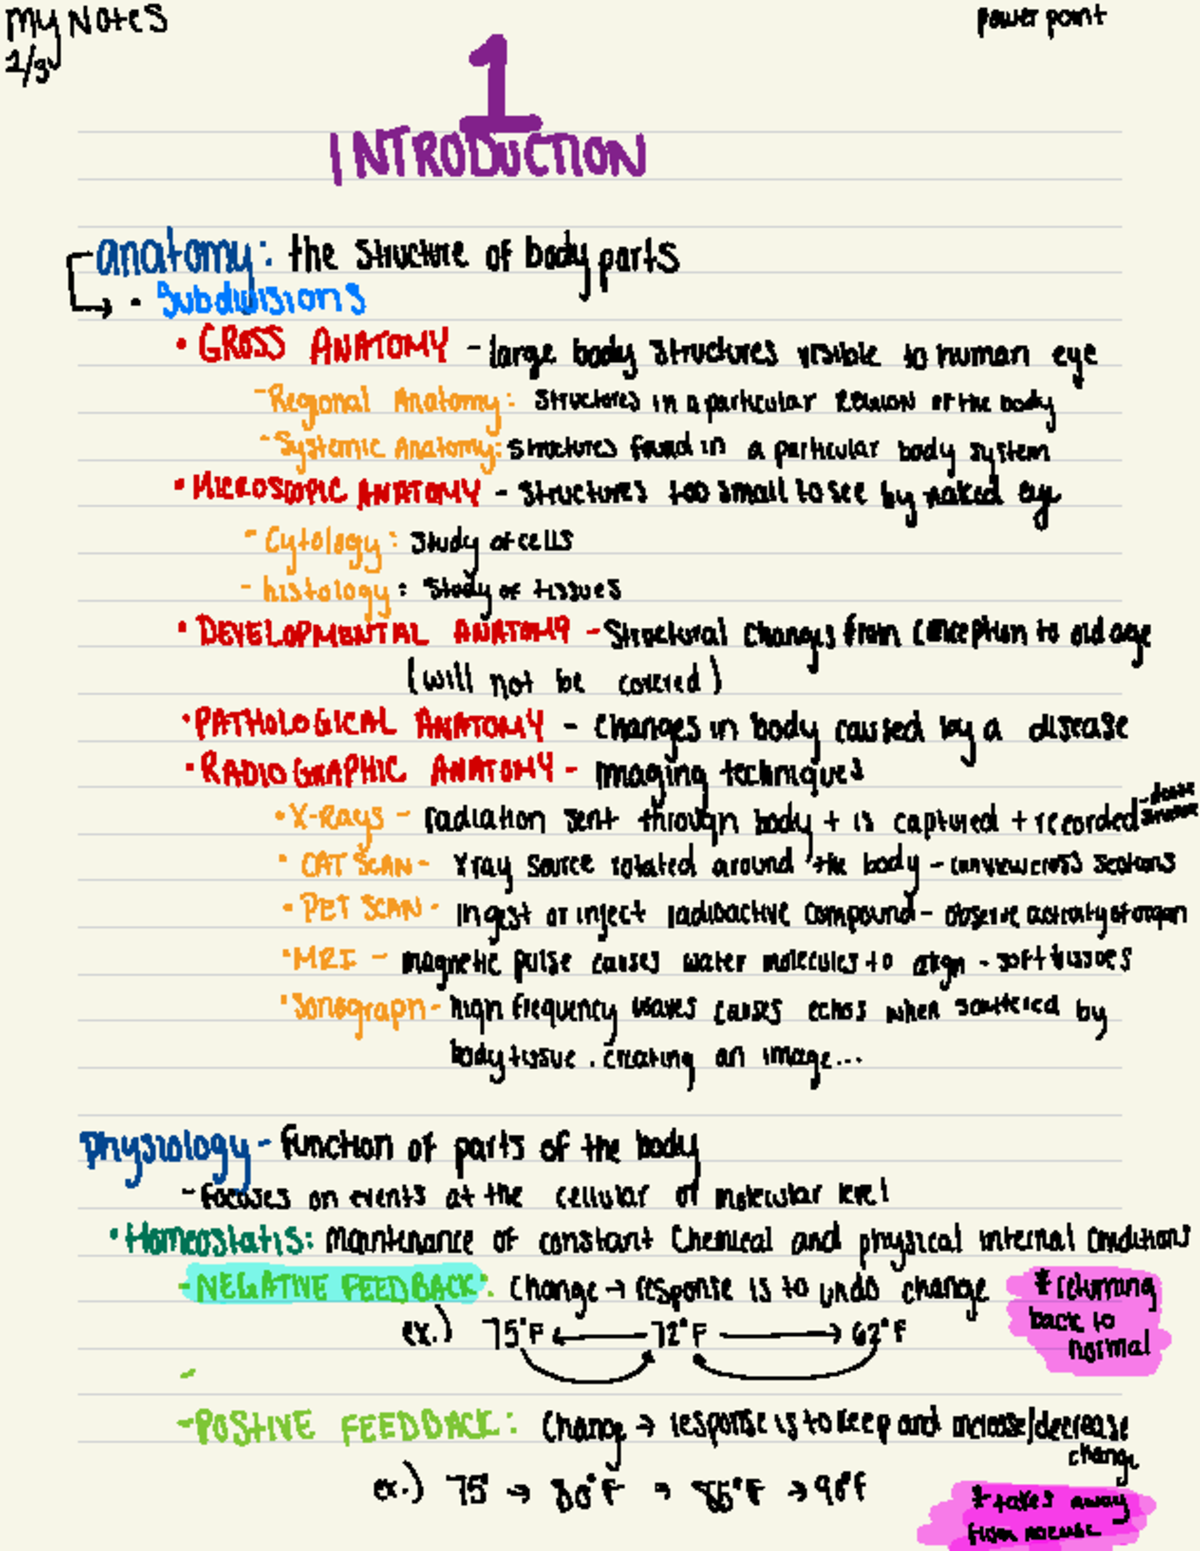 My Notes
power point
1/3
1
INTRODUCTION
anatomy: the structure of body parts
• Subdivisions
• GROSS ANATOMY - large body structures visible to human eye
- Regional Anatomy: structures in a particular REGION of the body
- Systemic Anatomy: structures found in a particular body system
• MICROSCOPIC ANATOMY - structures too small to see by naked eye
- Cytology: study of cells
- histology: study of tissues
• DEVELOPMENTAL ANATOMY - Structural changes from conception to old age
(will not be covered)
• PATHOLOGICAL ANATOMY - changes in body caused by a disease
• RADIOGRAPHIC ANATOMY - imaging techniques
• X-Rays - radiation sent through body + is captured + recorded - dense
• CAT SCAN - Xray source rotated around the body - can view cross sections
• PET SCAN - ingest or inject radioactive compound - observe activity of organ
• MRI - magnetic pulse causes water molecules to align - soft tissues
• Sonograph - high frequency waves causes echos when scattered by
body tissue . creating an image...
Physiology - function of parts of the body
- focuses on events at the cellular or molecular level
• Homeostatis: maintenance of constant Chemical and physical internal conditions
- NEGATIVE FEEDBACK: Change → response is to undo change
* returning
back to
normal
ex.) 75°F ← 72°F → 62°F
-
- POSTIVE FEEDBACK: Change → response is to keep and increase/decrease
change
ex.) 75° → 80°F → 85°F → 90°F
* takes away
from